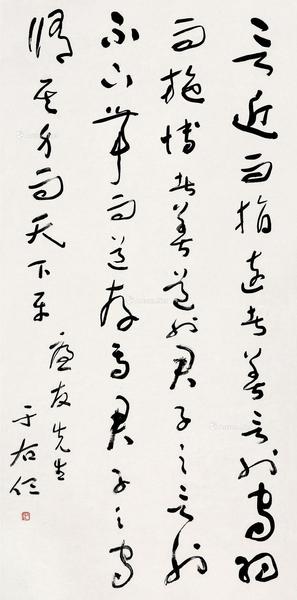 言近而指遠者善言也守約
而施博者善道也君子之言也
不下帶而道存焉君子之守
脩其身而天下平
友先生
于右任